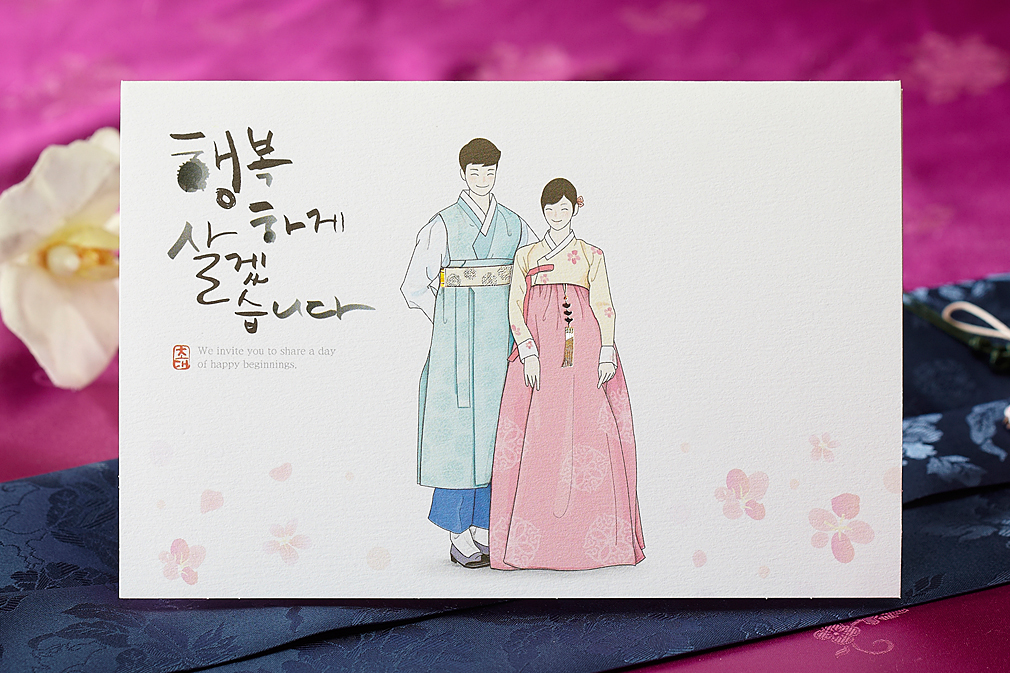 행복
하게
살겠
습니다
초대
We invite you to share a day
of happy beginnings.